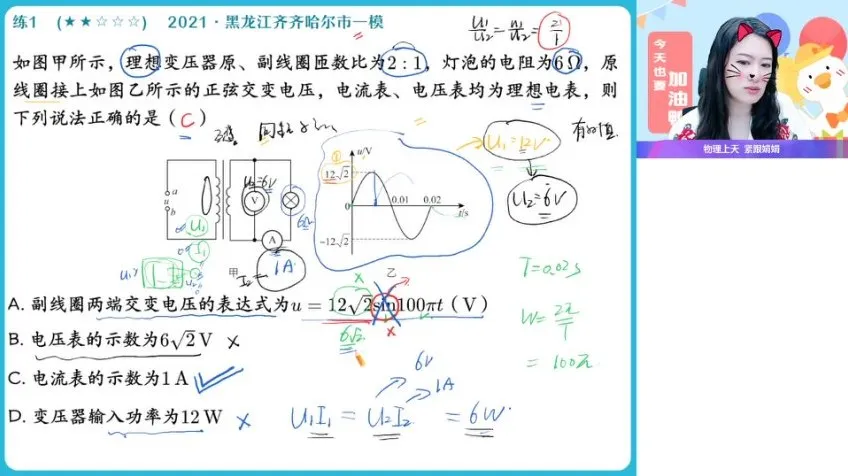 练1 (★★☆☆☆) 2021·黑龙江齐齐哈尔市一模
U₁/U₂=n₁/n₂=2/1
如图甲所示，理想变压器原、副线圈匝数比为2:1，灯泡的电阻为6Ω，原
线圈接上如图乙所示的正弦交变电压，电流表、电压表均为理想电表，则
下列说法正确的是（C）
U₁=12V
有效值
U₂=6V
u/V
12√2
0
0.01
0.02
t/s
-12√2
a
u
b
U₂=6V
V
A
6Ω
U₁
I₁
I₂=1A
甲
乙
T=0.02s
W=2π/T
=100π
A. 副线圈两端交变电压的表达式为u=12√2sin100πt（V）
6√2
B. 电压表的示数为6√2V
C. 电流表的示数为1A
D. 变压器输入功率为12W
6V
1A
U₁I₁=U₂I₂=6W
今天也要
加油
物理上天 紧跟娟娟